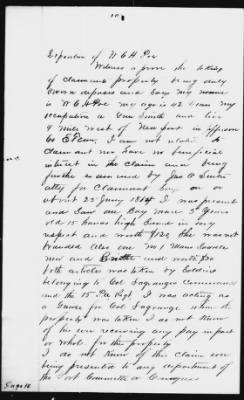 Deposition of W C H Poe
Witness to prove the taking
of claimants property being duly
sworn deposes and says my name
is W C H Poe my age is 42 years my
occupation a Gun Smith and live
9 miles west of Newport in Jefferson
Co E Tenn, I am not related to
claimant nor have no beneficial
interest in the claim and being
further examined by Jas
atty for Claimant says on or
about 25 Jany 1864 I was present
and saw one Bay mare 5 years
old 15 hands high sound in every
respect and worth $125 She was not
branded Also one No 1 Mans Saddle
new and worth $20
both articles was taken by Soldiers
belonging to Col Lagranges Command
and the 15th Pa Regt I was acting as
a Guide for Col Lagrange when the
property was taken I do not know
of his ever receiving any pay in part
or whole for the property
I do not know of this claim ever
being presented to any department of
the Govt Committee or Congress
Page 18